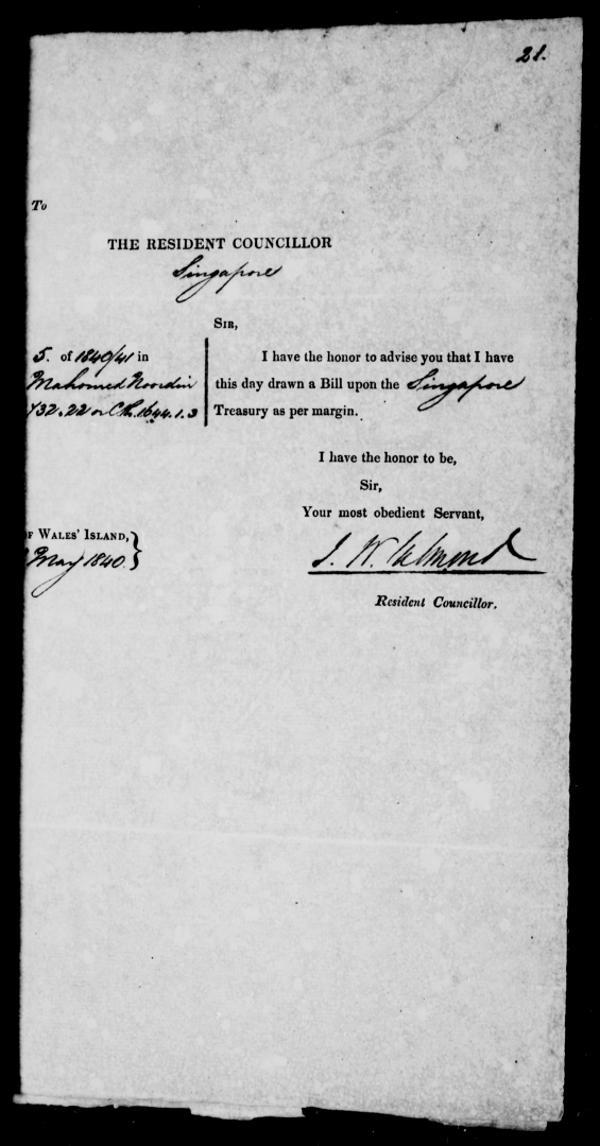 21.
To
THE RESIDENT COUNCILLOR
Singapore
SIR,
5. of 1840/41 in
Mahomed Noordin
732.22 or C Rs. 1644.1.3
I have the honor to advise you that I have
this day drawn a Bill upon the Singapore
Treasury as per margin.
I have the honor to be,
Sir,
Your most obedient Servant,
F WALES' ISLAND,
May 1840.
J. W. Salmond
Resident Councillor.